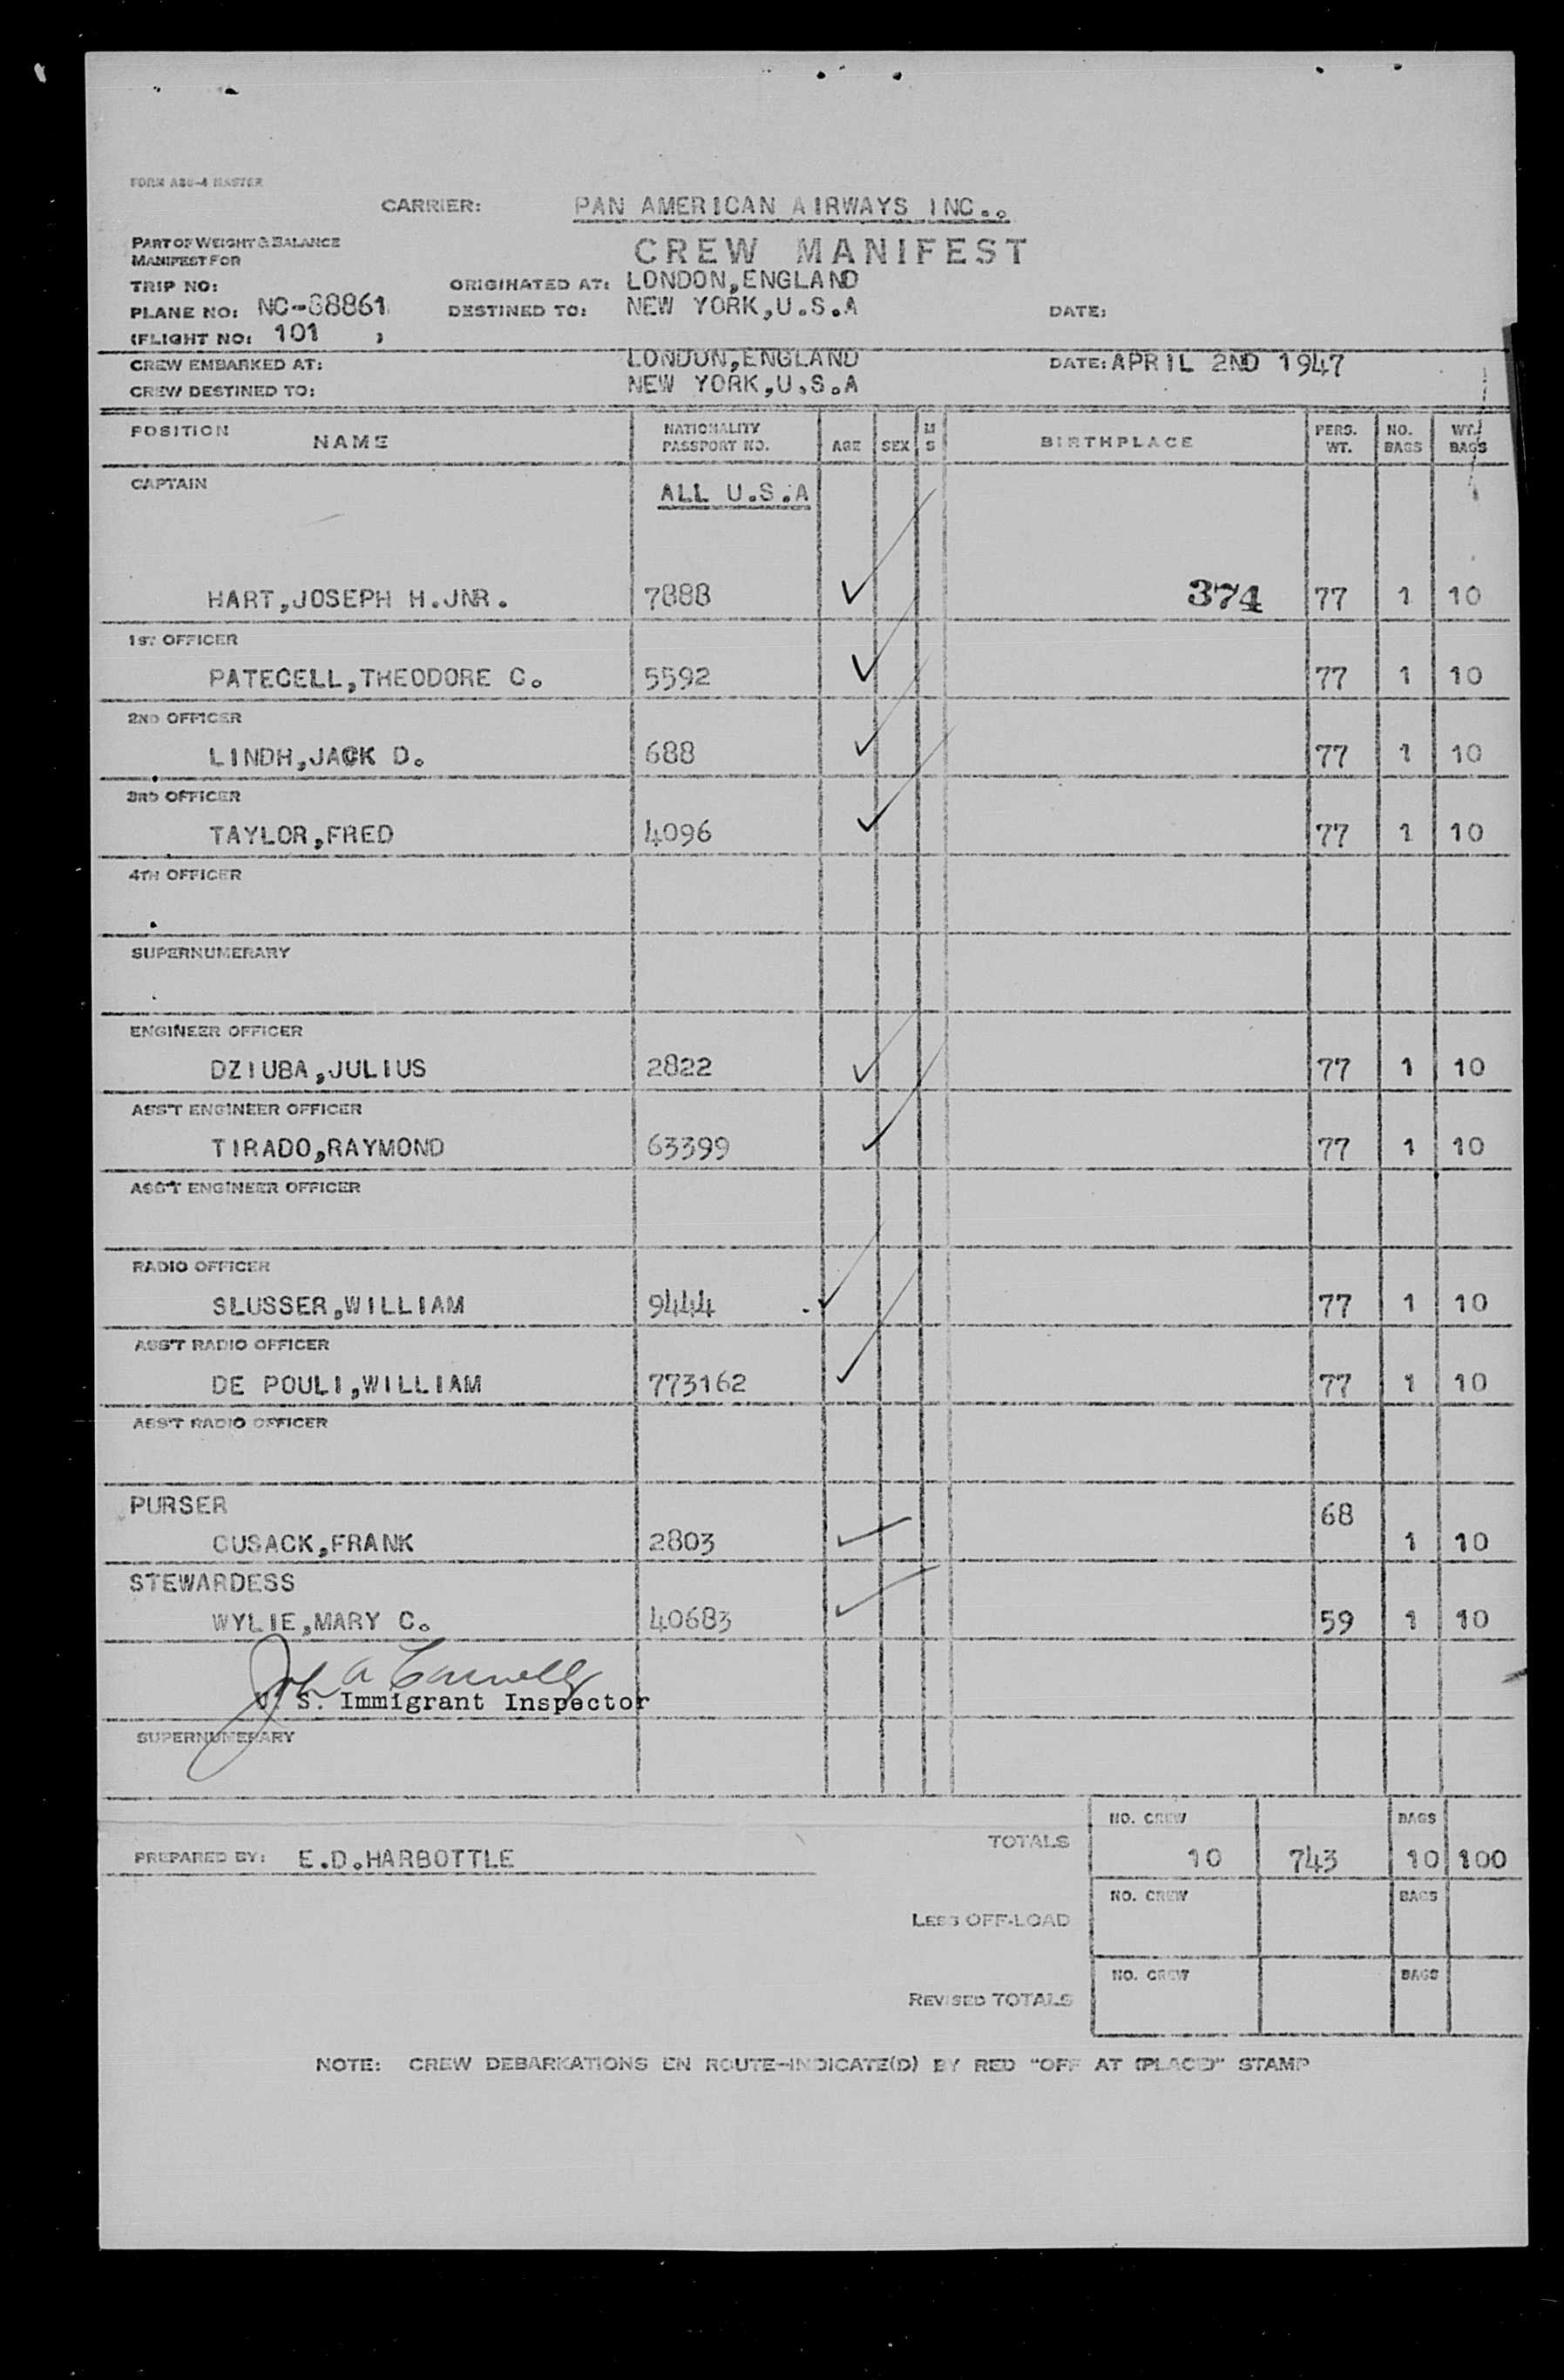 FORM A80-4 MASTER
CARRIER: PAN AMERICAN AIRWAYS INC..
PART OF WEIGHT & BALANCE
MANIFEST FOR
CREW MANIFEST
TRIP NO: ORIGINATED AT: LONDON,ENGLAND
PLANE NO: NC-88861 DESTINED TO: NEW YORK,U.S.A DATE:
(FLIGHT NO: 101 )
CREW EMBARKED AT: LONDON,ENGLAND DATE: APRIL 2ND 1947
CREW DESTINED TO: NEW YORK,U.S.A
POSITION NAME NATIONALITY PASSPORT NO. AGE SEX M S BIRTHPLACE PERS. WT. NO. BAGS WT. BAGS
CAPTAIN ALL U.S.A
HART,JOSEPH H.JNR. 7888 374 77 1 10
1ST OFFICER
PATECELL,THEODORE C. 5592 77 1 10
2ND OFFICER
LINDH,JACK D. 688 77 1 10
3RD OFFICER
TAYLOR,FRED 4096 77 1 10
4TH OFFICER
SUPERNUMERARY
ENGINEER OFFICER
DZIUBA,JULIUS 2822 77 1 10
ASS'T ENGINEER OFFICER
TIRADO,RAYMOND 63399 77 1 10
ASS'T ENGINEER OFFICER
RADIO OFFICER
SLUSSER,WILLIAM 9444 77 1 10
ASS'T RADIO OFFICER
DE POULI,WILLIAM 773162 77 1 10
ASS'T RADIO OFFICER
PURSER 68
CUSACK,FRANK 2803 1 10
STEWARDESS
WYLIE,MARY C. 40683 59 1 10
John A
U. S. Immigrant Inspector
SUPERNUMERARY
NO. CREW BAGS
TOTALS 10 743 10 100
PREPARED BY: E.D.HARBOTTLE
NO. CREW BAGS
LESS OFF-LOAD
NO. CREW BAGS
REVISED TOTALS
NOTE: CREW DEBARKATIONS EN ROUTE-INDICATE(D) BY RED "OFF AT (PLACE)" STAMP